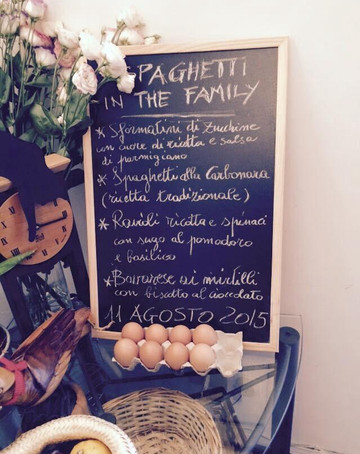 SPAGHETTI
IN THE FAMILY
* Sformatini di zucchine
con cuore di ricotta e salsa
di parmigiano
* Spaghetti alla Carbonara
(ricetta tradizionale)
* Ravioli ricotta e spinaci
con sugo al pomodoro
e basilico
* Bavarese ai mirtilli
con biscotto al cioccolato
11 AGOSTO 2015